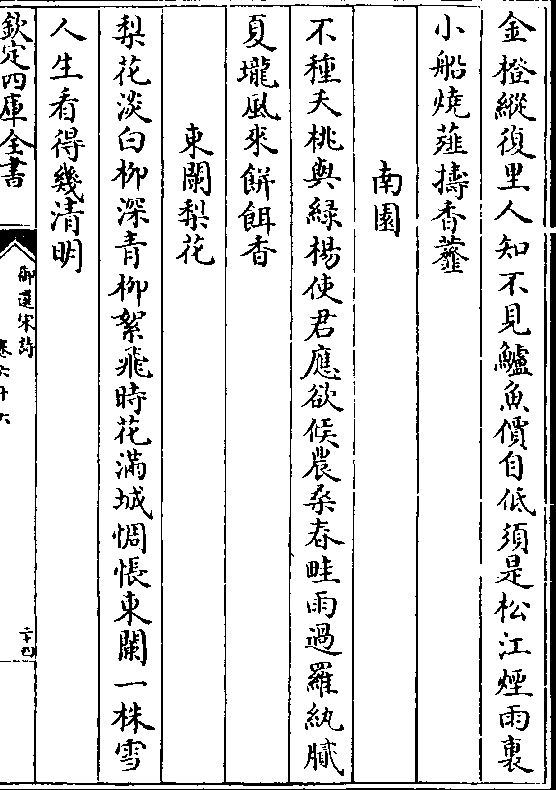 金橙縱復里人知不見鱸魚價自低須是松江煙雨裏
小船燒薤擣香虀
南園
不種夭桃與綠楊使君應欲候農桑春畦雨過羅紈膩
夏壠風來餅餌香
東闌梨花
梨花淡白柳深青柳絮飛時花滿城惆悵東闌一株雪
人生看得幾清明
欽定四庫全書
御選宋詩
卷六十六
二十四